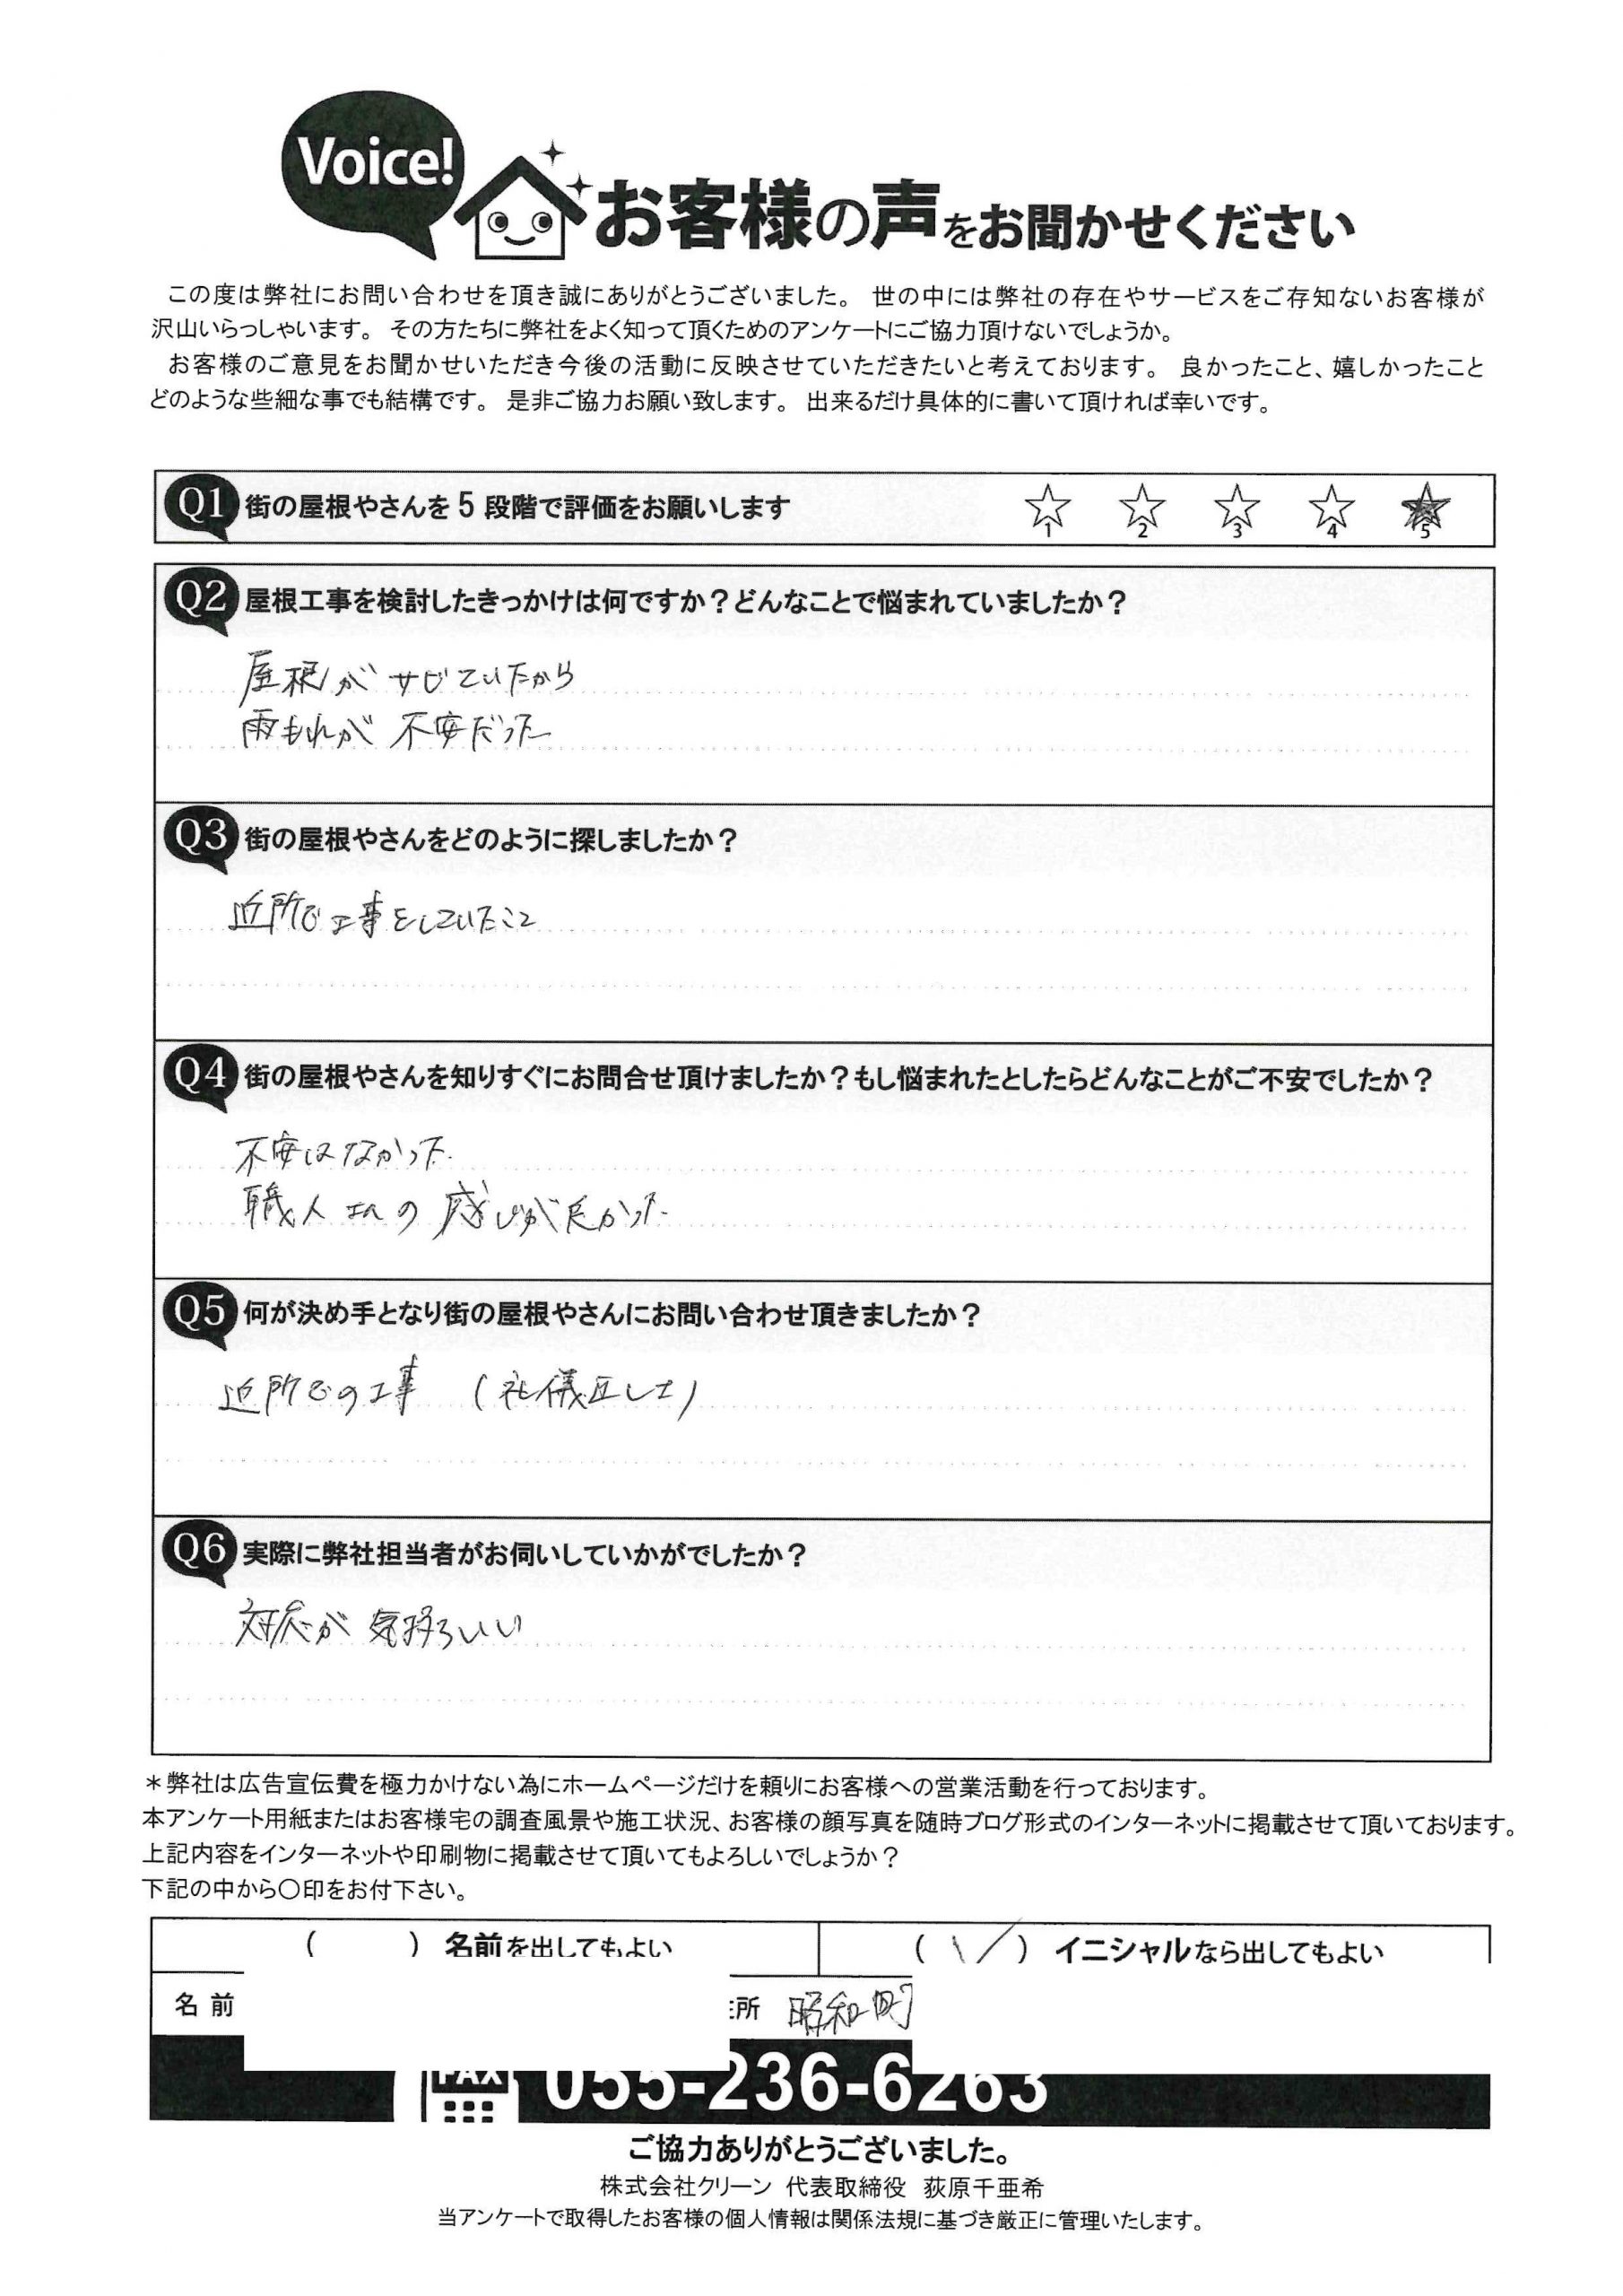 Voice!
お客様の声をお聞かせください
この度は弊社にお問い合わせを頂き誠にありがとうございました。 世の中には弊社の存在やサービスをご存知ないお客様が
沢山いらっしゃいます。 その方たちに弊社をよく知って頂くためのアンケートにご協力頂けないでしょうか。
お客様のご意見をお聞かせいただき今後の活動に反映させていただきたいと考えております。 良かったこと、嬉しかったこと
どのような些細な事でも結構です。 是非ご協力お願い致します。 出来るだけ具体的に書いて頂ければ幸いです。
Q1 街の屋根やさんを 5 段階で評価をお願いします ☆1 ☆2 ☆3 ☆4 ★5
Q2 屋根工事を検討したきっかけは何ですか？どんなことで悩まれていましたか？
屋根が サビていたから
雨もれが 不安だった
Q3 街の屋根やさんをどのように探しましたか？
近所で工事をしていたこと
Q4 街の屋根やさんを知りすぐにお問合せ頂けましたか？もし悩まれたとしたらどんなことがご不安でしたか？
不安はなかった.
職人さんの 感じが良かった.
Q5 何が決め手となり街の屋根やさんにお問い合わせ頂きましたか？
近所での工事 (礼儀正しさ)
Q6 実際に弊社担当者がお伺いしていかがでしたか？
対応が 気持ちいい
＊弊社は広告宣伝費を極力かけない為にホームページだけを頼りにお客様への営業活動を行っております。
本アンケート用紙またはお客様宅の調査風景や施工状況、お客様の顔写真を随時ブログ形式のインターネットに掲載させて頂いております。
上記内容をインターネットや印刷物に掲載させて頂いてもよろしいでしょうか？
下記の中から○印をお付下さい。
( ) 名前を出してもよい ( \／ ) イニシャルなら出してもよい
名 前 所 昭和町
FAX 055-236-6263
ご協力ありがとうございました。
株式会社クリーン 代表取締役 荻原千亜希
当アンケートで取得したお客様の個人情報は関係法規に基づき厳正に管理いたします。